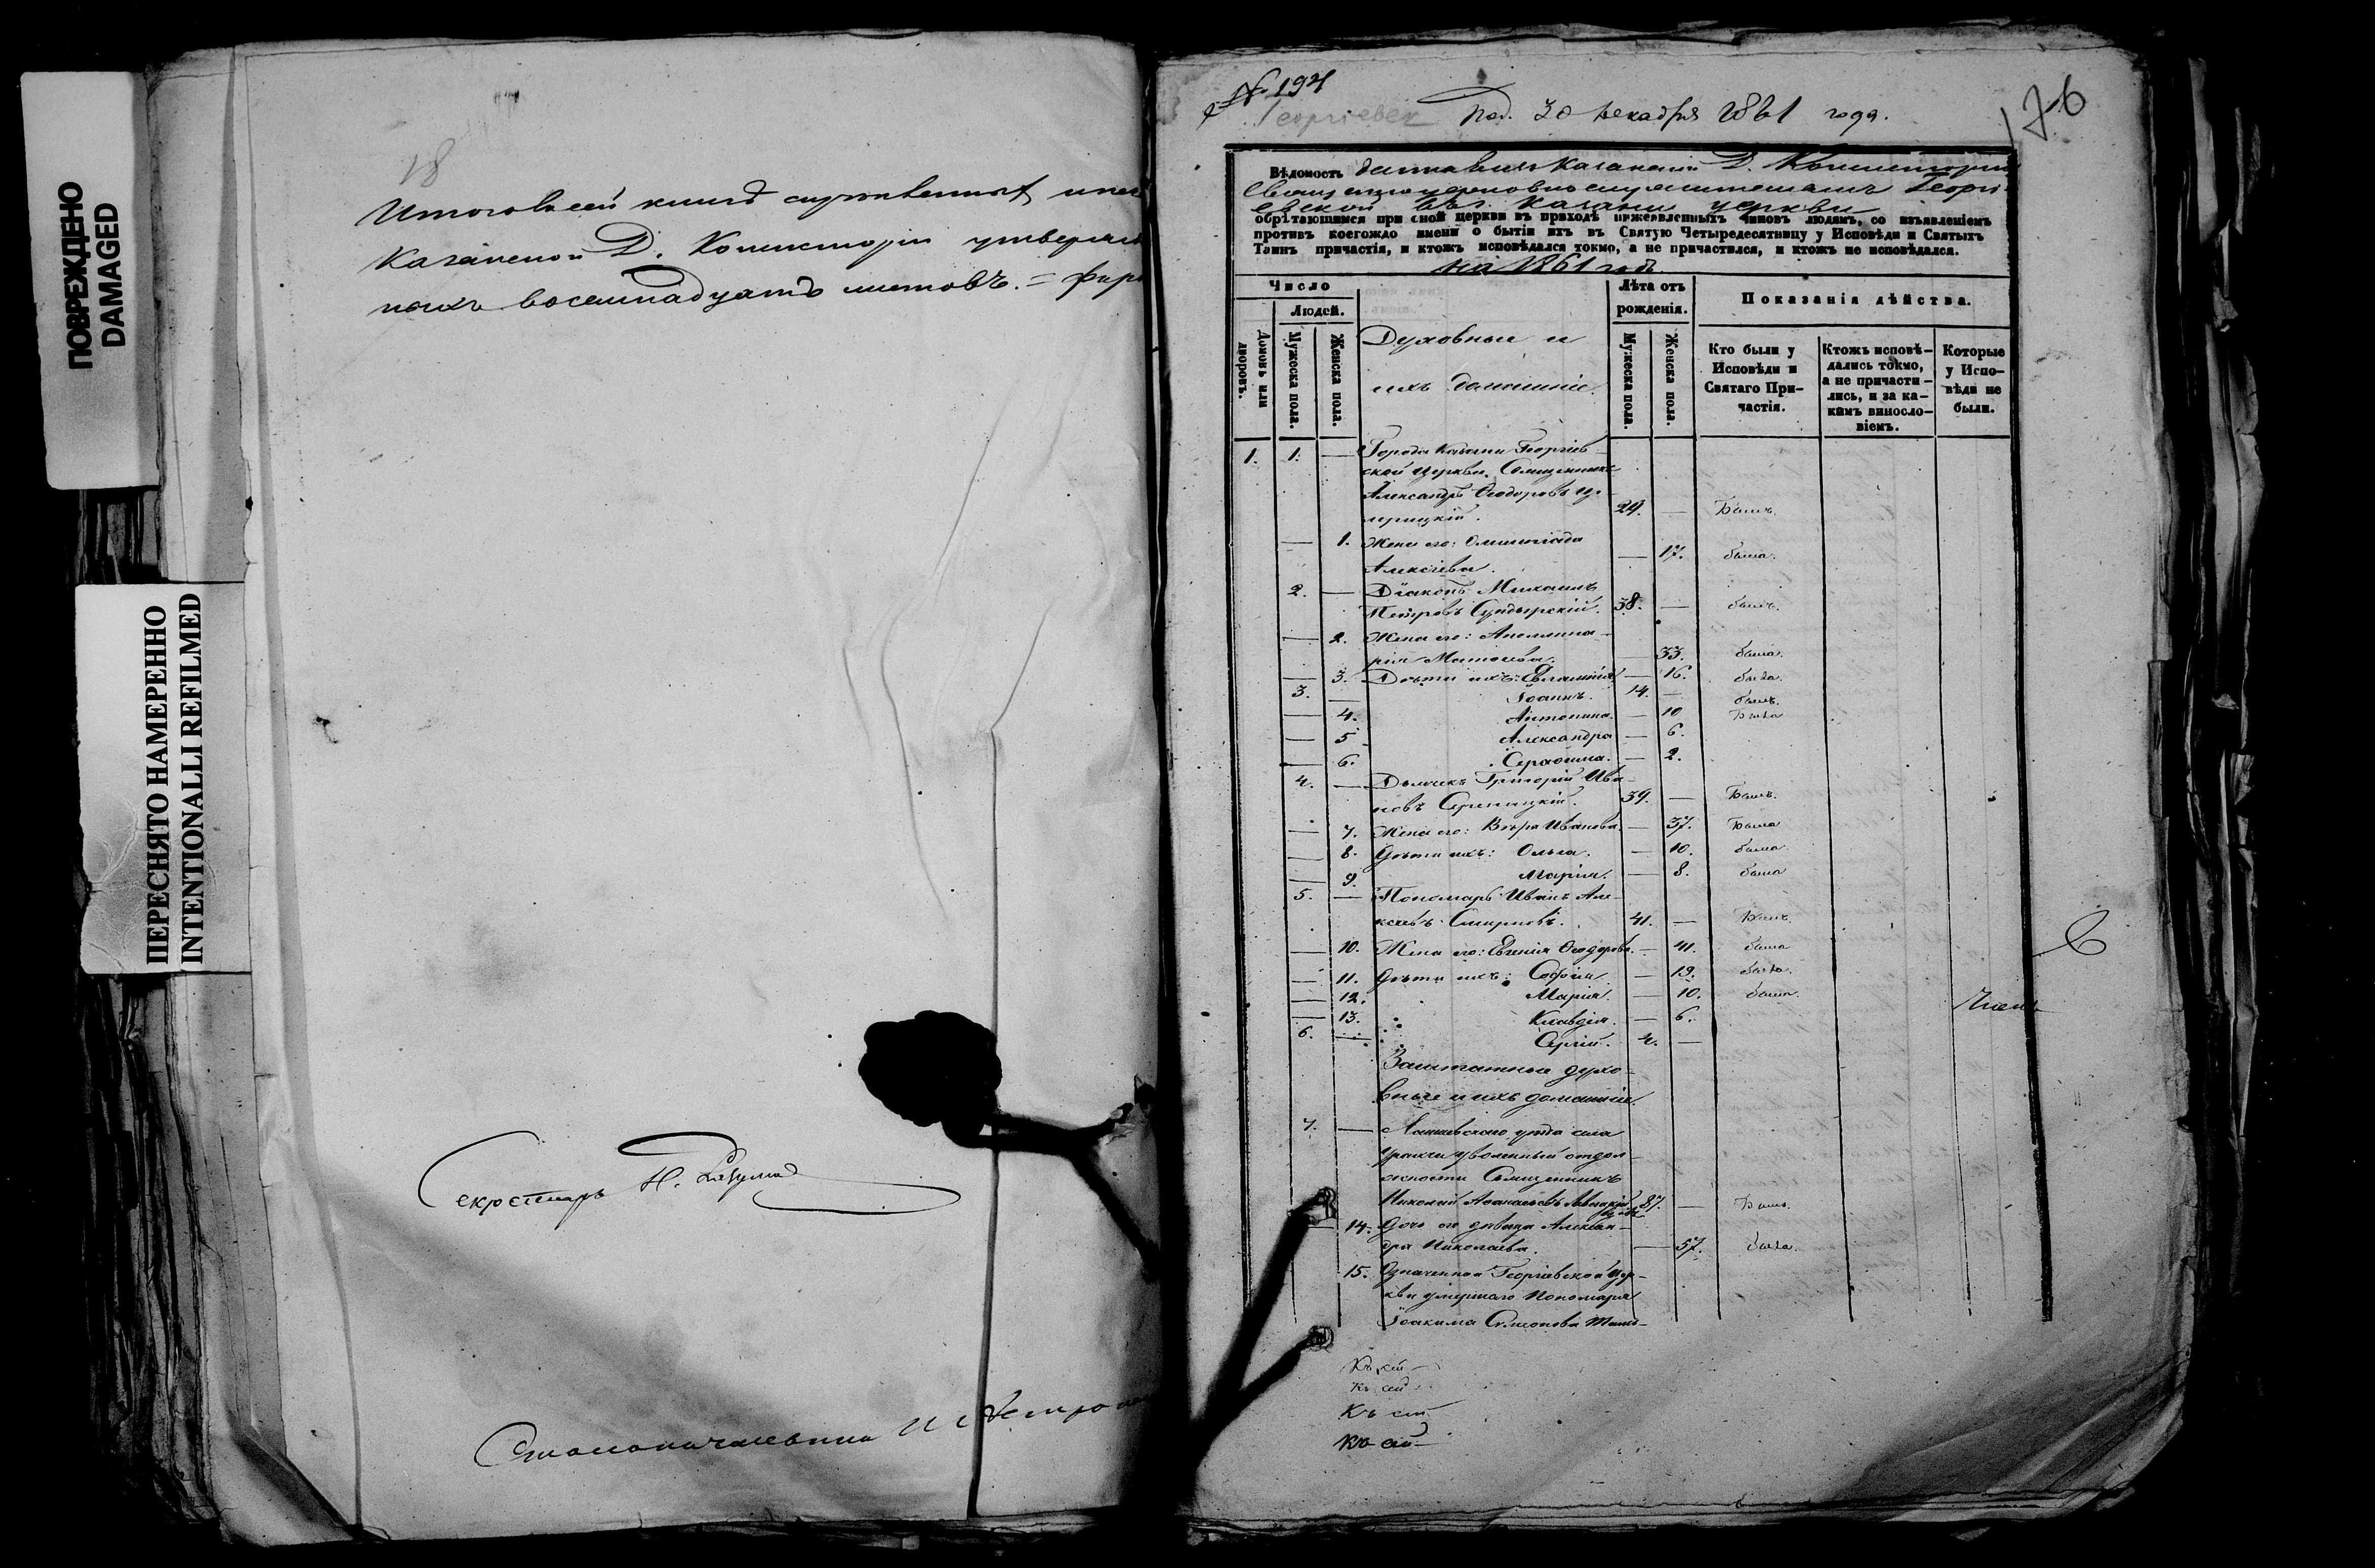 ПОВРЕЖДЕНО
DAMAGED
ПЕРЕСНЯТО НАМЕРЕННО
INTENTIONALLI REFILMED
18
Итого въ сей книгѣ
Казанской Д. Консисторіи
восемнадцать листовъ. =
Секретарь Н.
Столоначальникъ
№ 194
Георгіевск Под. 30 декабря 1861 года.
76
Вѣдомость данная изъ Казанской Д. Консисторіи
Священноцерковнослужителямъ Георгі-
евской въ г. Казани церкви
обрѣтающимся при оной церкви въ приходѣ нижеявленныхъ чиновъ людямъ, со изъявленіемъ
противъ коегождо имени о бытіи ихъ въ Святую Четыредесятницу у Исповѣди и Святыхъ
Таинъ причастія, и ктожъ исповѣдался токмо, а не причастился, и ктожъ не исповѣдался.
на 1861 годъ
Число
Людей.
Домовъ или дворовъ.
Мужеска пола.
Женска пола.
Духовные и
ихъ домашніе.
Лѣта отъ рожденія.
Мужеска пола.
Женска пола.
Показанія дѣйства.
Кто были у Исповѣди и Святаго Причастія.
Ктожъ исповѣ-дались токмо, а не причасти-лись, и за ка-кимъ винословіемъ.
Которые у Испо-вѣди не были.
1. 1. — Города Казани Георгіев-
ской церкви, Священникъ
Александръ Ѳеодоровъ
29. — Былъ.
— 1. Жена его: Олимпіада
Алексѣева. — 17. была.
2. — Діаконъ Михаилъ
Петровъ Сундырскій. 38. — былъ.
— 2. Жена его: Аполлина-
рія Матвѣева. — 33. была.
— 3. Дѣти ихъ: Евлампія — 16. была.
3. — Іоаннъ. 14. — былъ.
— 4. Антонина. — 10 Была
— 5 Александра — 6.
— 6. Серафима. — 2.
4. — Дьячекъ Григорій Ива-
новъ 39. — Былъ.
— 7. Жена его: Вѣра Иванова. — 37. Была
— 8. Дѣти ихъ: Ольга. — 10. была
— 9. Марія. — 8. была
5. — Пономарь Иванъ Але-
ксѣевъ Смирновъ. 41. — Былъ.
— 10. Жена его: Евгенія Ѳеодорова. — 41. была
— 11. Дѣти ихъ: Софія. — 19. была.
— 12. Марія. — 10. была.
— 13. Клавдія. — 6.
6. — Сергій. 2. —
Заштатные духо-
вные и ихъ домашніе.
7. — Лаишевскаго уѣзда села
Урахчи уволенный отъ дол-
жности Священникъ
Николай 87. — Былъ.
— 14. Дочь его дѣвица Алексан-
дра Николаева. — 57. была.
15. Означенной Георгіевской цер-
кви умершаго Пономаря
Іоакима
Къ сей
Къ сей
Къ сей
Къ сей